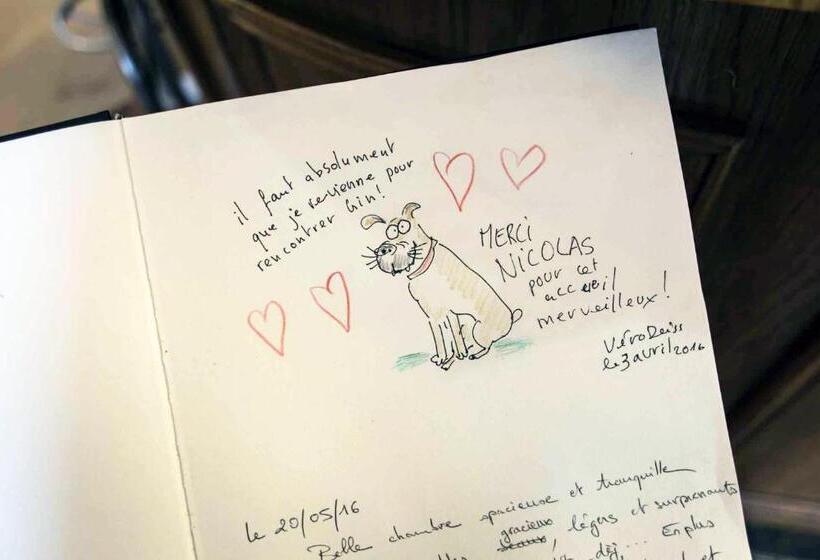 il faut absolument
que je revienne pour
rencontrer Gin!
MERCI
NICOLAS
pour cet
accueil
merveilleux!
Véro Deiss
le 3 avril 2016
le 20/05/16
Belle chambre spacieuse et tranquille
gracieux, légers et surprenants
... En plus
et